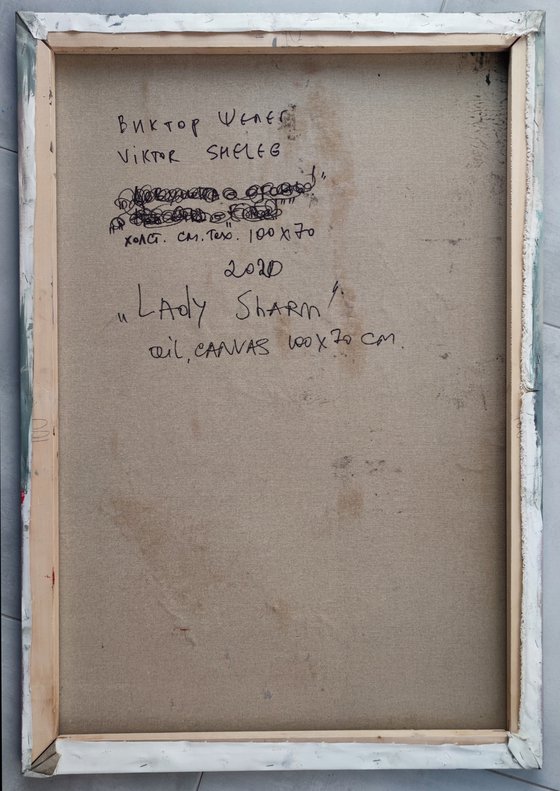 Виктор Шелег
Viktor Sheleg
холст. см. тех. 100x70
2020
„Lady Sharm"
oil, canvas 100x70 cm.